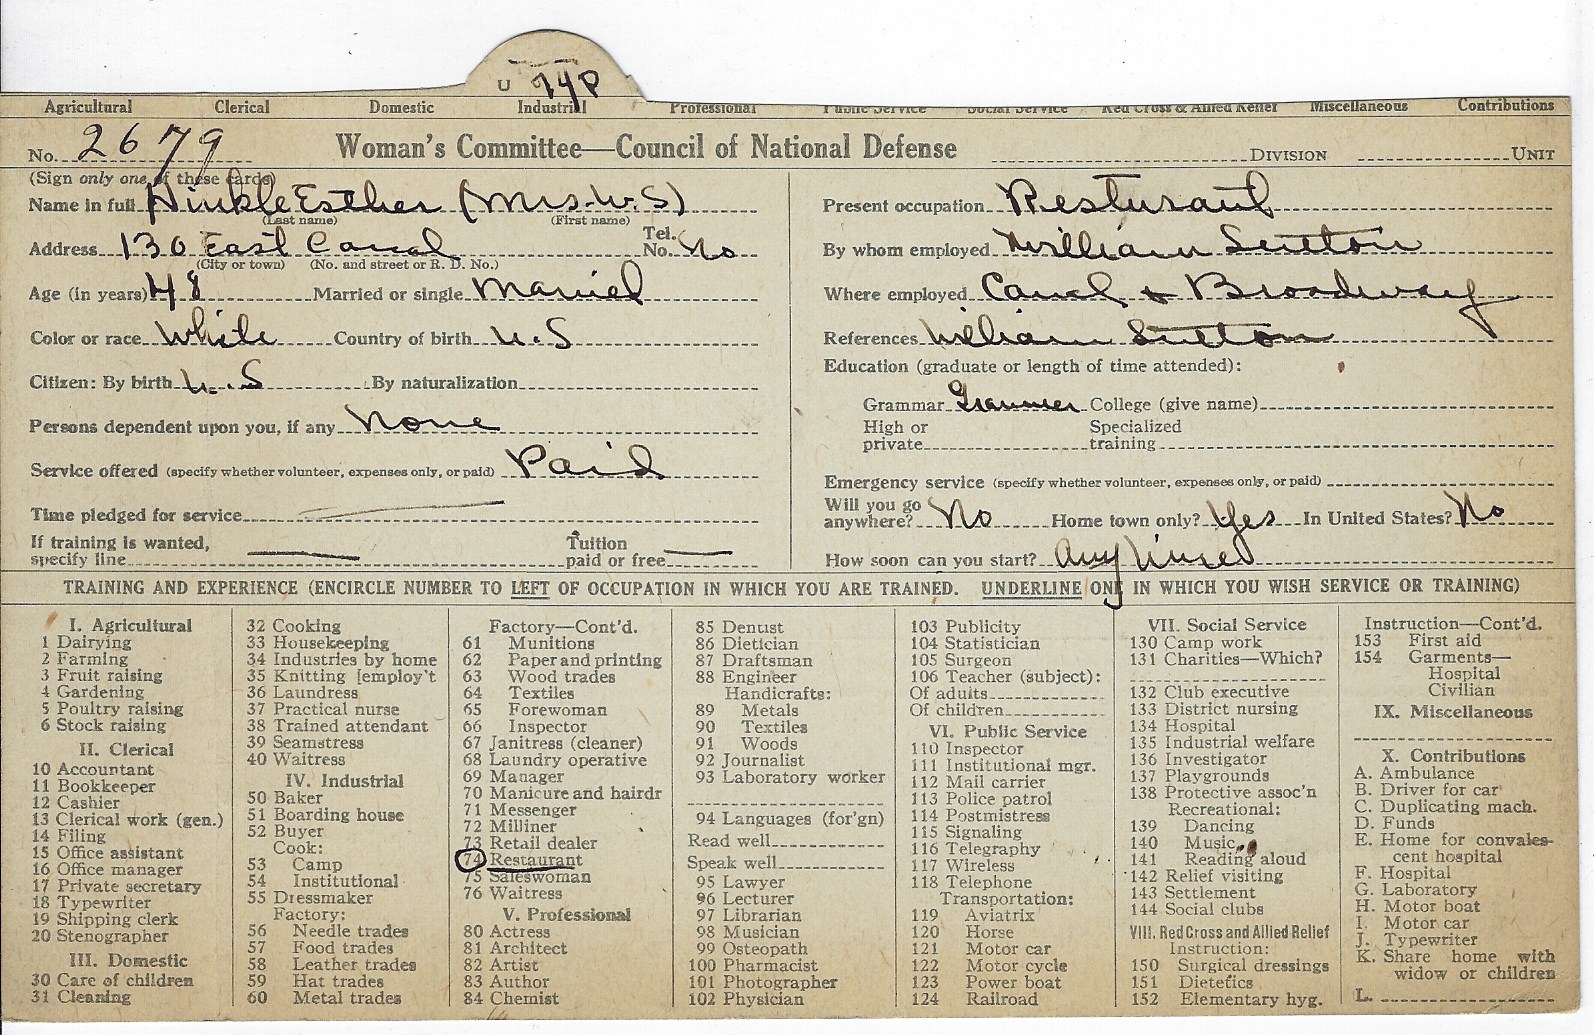 U 74P
Agricultural Clerical Domestic Industrial Professional Public Service Social Service Red Cross & Allied Relief Miscellaneous Contributions
No. 2679 Woman's Committee—Council of National Defense DIVISION UNIT
(Sign only one of these cards)
Name in full Hinkle Esther (Mrs. W. S)
(Last name) (First name)
Address 130 East Canal Tel. No. No
(City or town) (No. and street or R. D. No.)
Age (in years) 48 Married or single Married
Color or race White Country of birth U. S
Citizen: By birth U. S By naturalization
Persons dependent upon you, if any None
Service offered (specify whether volunteer, expenses only, or paid) Paid
Time pledged for service
If training is wanted, specify line Tuition paid or free
Present occupation Resturant
By whom employed William Sutton
Where employed Canal & Broadway
References William Sutton
Education (graduate or length of time attended):
Grammar Grammer College (give name)
High or private Specialized training
Emergency service (specify whether volunteer, expenses only, or paid)
Will you go anywhere? No Home town only? Yes In United States? No
How soon can you start? Any
TRAINING AND EXPERIENCE (ENCIRCLE NUMBER TO LEFT OF OCCUPATION IN WHICH YOU ARE TRAINED. UNDERLINE ONE IN WHICH YOU WISH SERVICE OR TRAINING)
I. Agricultural
1 Dairying
2 Farming
3 Fruit raising
4 Gardening
5 Poultry raising
6 Stock raising
II. Clerical
10 Accountant
11 Bookkeeper
12 Cashier
13 Clerical work (gen.)
14 Filing
15 Office assistant
16 Office manager
17 Private secretary
18 Typewriter
19 Shipping clerk
20 Stenographer
III. Domestic
30 Care of children
31 Cleaning
32 Cooking
33 Housekeeping
34 Industries by home
35 Knitting [employ't
36 Laundress
37 Practical nurse
38 Trained attendant
39 Seamstress
40 Waitress
IV. Industrial
50 Baker
51 Boarding house
52 Buyer
Cook:
53 Camp
54 Institutional
55 Dressmaker
Factory:
56 Needle trades
57 Food trades
58 Leather trades
59 Hat trades
60 Metal trades
Factory—Cont'd.
61 Munitions
62 Paper and printing
63 Wood trades
64 Textiles
65 Forewoman
66 Inspector
67 Janitress (cleaner)
68 Laundry operative
69 Manager
70 Manicure and hairdr
71 Messenger
72 Milliner
73 Retail dealer
74 Restaurant
75 Saleswoman
76 Waitress
V. Professional
80 Actress
81 Architect
82 Artist
83 Author
84 Chemist
85 Dentist
86 Dietician
87 Draftsman
88 Engineer
Handicrafts:
89 Metals
90 Textiles
91 Woods
92 Journalist
93 Laboratory worker
94 Languages (for'gn)
Read well
Speak well
95 Lawyer
96 Lecturer
97 Librarian
98 Musician
99 Osteopath
100 Pharmacist
101 Photographer
102 Physician
103 Publicity
104 Statistician
105 Surgeon
106 Teacher (subject):
Of adults
Of children
VI. Public Service
110 Inspector
111 Institutional mgr.
112 Mail carrier
113 Police patrol
114 Postmistress
115 Signaling
116 Telegraphy
117 Wireless
118 Telephone
Transportation:
119 Aviatrix
120 Horse
121 Motor car
122 Motor cycle
123 Power boat
124 Railroad
VII. Social Service
130 Camp work
131 Charities—Which?
132 Club executive
133 District nursing
134 Hospital
135 Industrial welfare
136 Investigator
137 Playgrounds
138 Protective assoc'n
Recreational:
139 Dancing
140 Music
141 Reading aloud
142 Relief visiting
143 Settlement
144 Social clubs
VIII. Red Cross and Allied Relief
Instruction:
150 Surgical dressings
151 Dietetics
152 Elementary hyg.
Instruction—Cont'd.
153 First aid
154 Garments—
Hospital
Civilian
IX. Miscellaneous
X. Contributions
A. Ambulance
B. Driver for car
C. Duplicating mach.
D. Funds
E. Home for convales-
cent hospital
F. Hospital
G. Laboratory
H. Motor boat
I. Motor car
J. Typewriter
K. Share home with
widow or children
L.